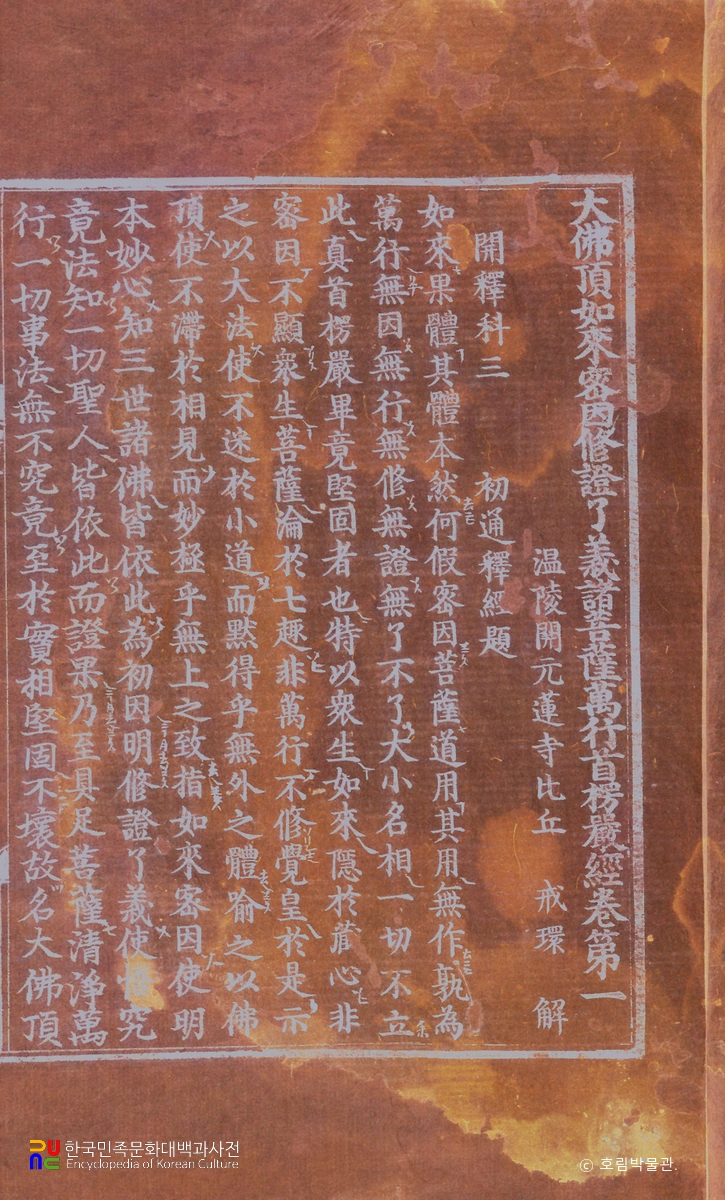 大佛頂如來密因修證了義諸菩薩萬行首楞嚴經卷第一
温陵開元蓮寺比丘 戒環 解
開釋科三 初通釋經題
如來果體其體本然何假密因菩薩道用其用無作孰為
萬行無因無行無修無證無了不了大小名相一切不立
此真首楞嚴畢竟堅固者也特以衆生如來隱於藏心非
密因不顯衆生菩薩淪於七趣非萬行不修覺皇於是示
之以大法使不迷於小道而黙得乎無外之體喻之以佛
頂使不滯於相見而妙極乎無上之致指如來密因使明
本妙心知三世諸佛皆依此為初因明修證了義使究
竟法知一切聖人皆依此而證果乃至具足菩薩清淨萬
行一切事法無不究竟至於實相堅固不壞故名大佛頂
한국민족문화대백과사전
Encyclopedia of Korean Culture
© 호림박물관.